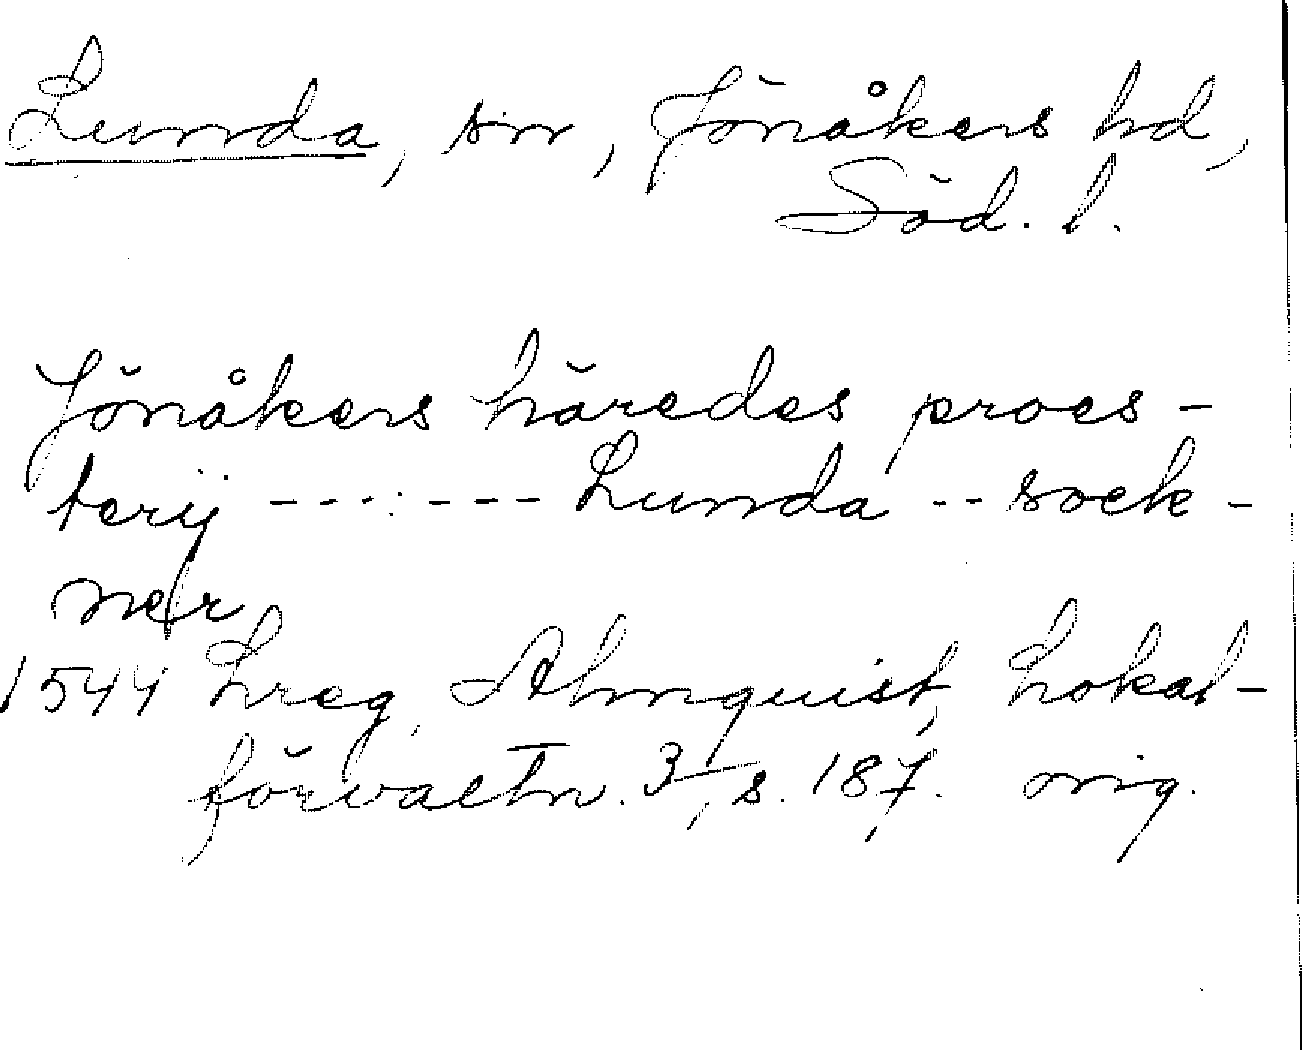 Lunda, sn, Jönåkers hd,
Söd. l.
Jönåkers häredes proes-
terij ------- Lunda -- sock-
ner
1544 Lreg, Almquist, Lokal-
förvaltn. 3, s. 187. orig.